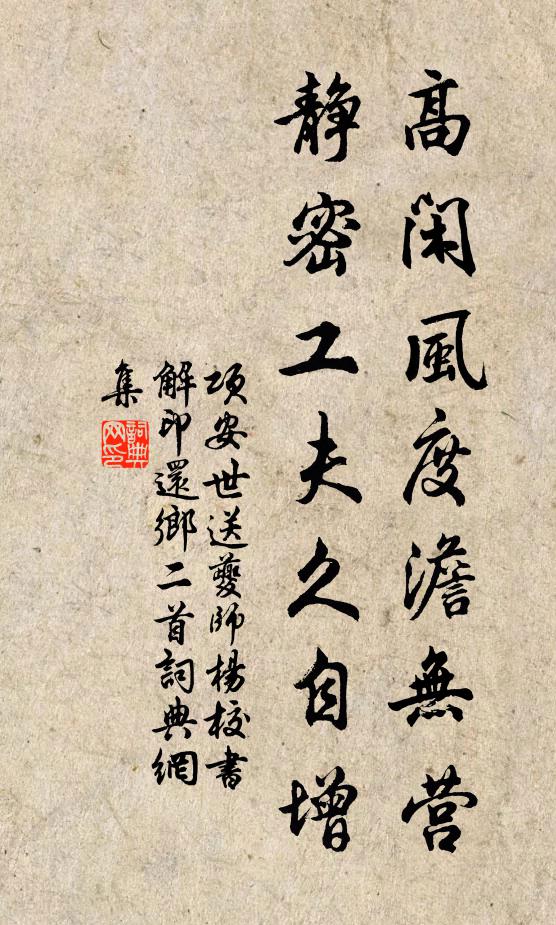 高閑風度澹無营
静密工夫久自增
項安世送夔師楊校書
解印還鄉二首詞典網
集
詞典
网印